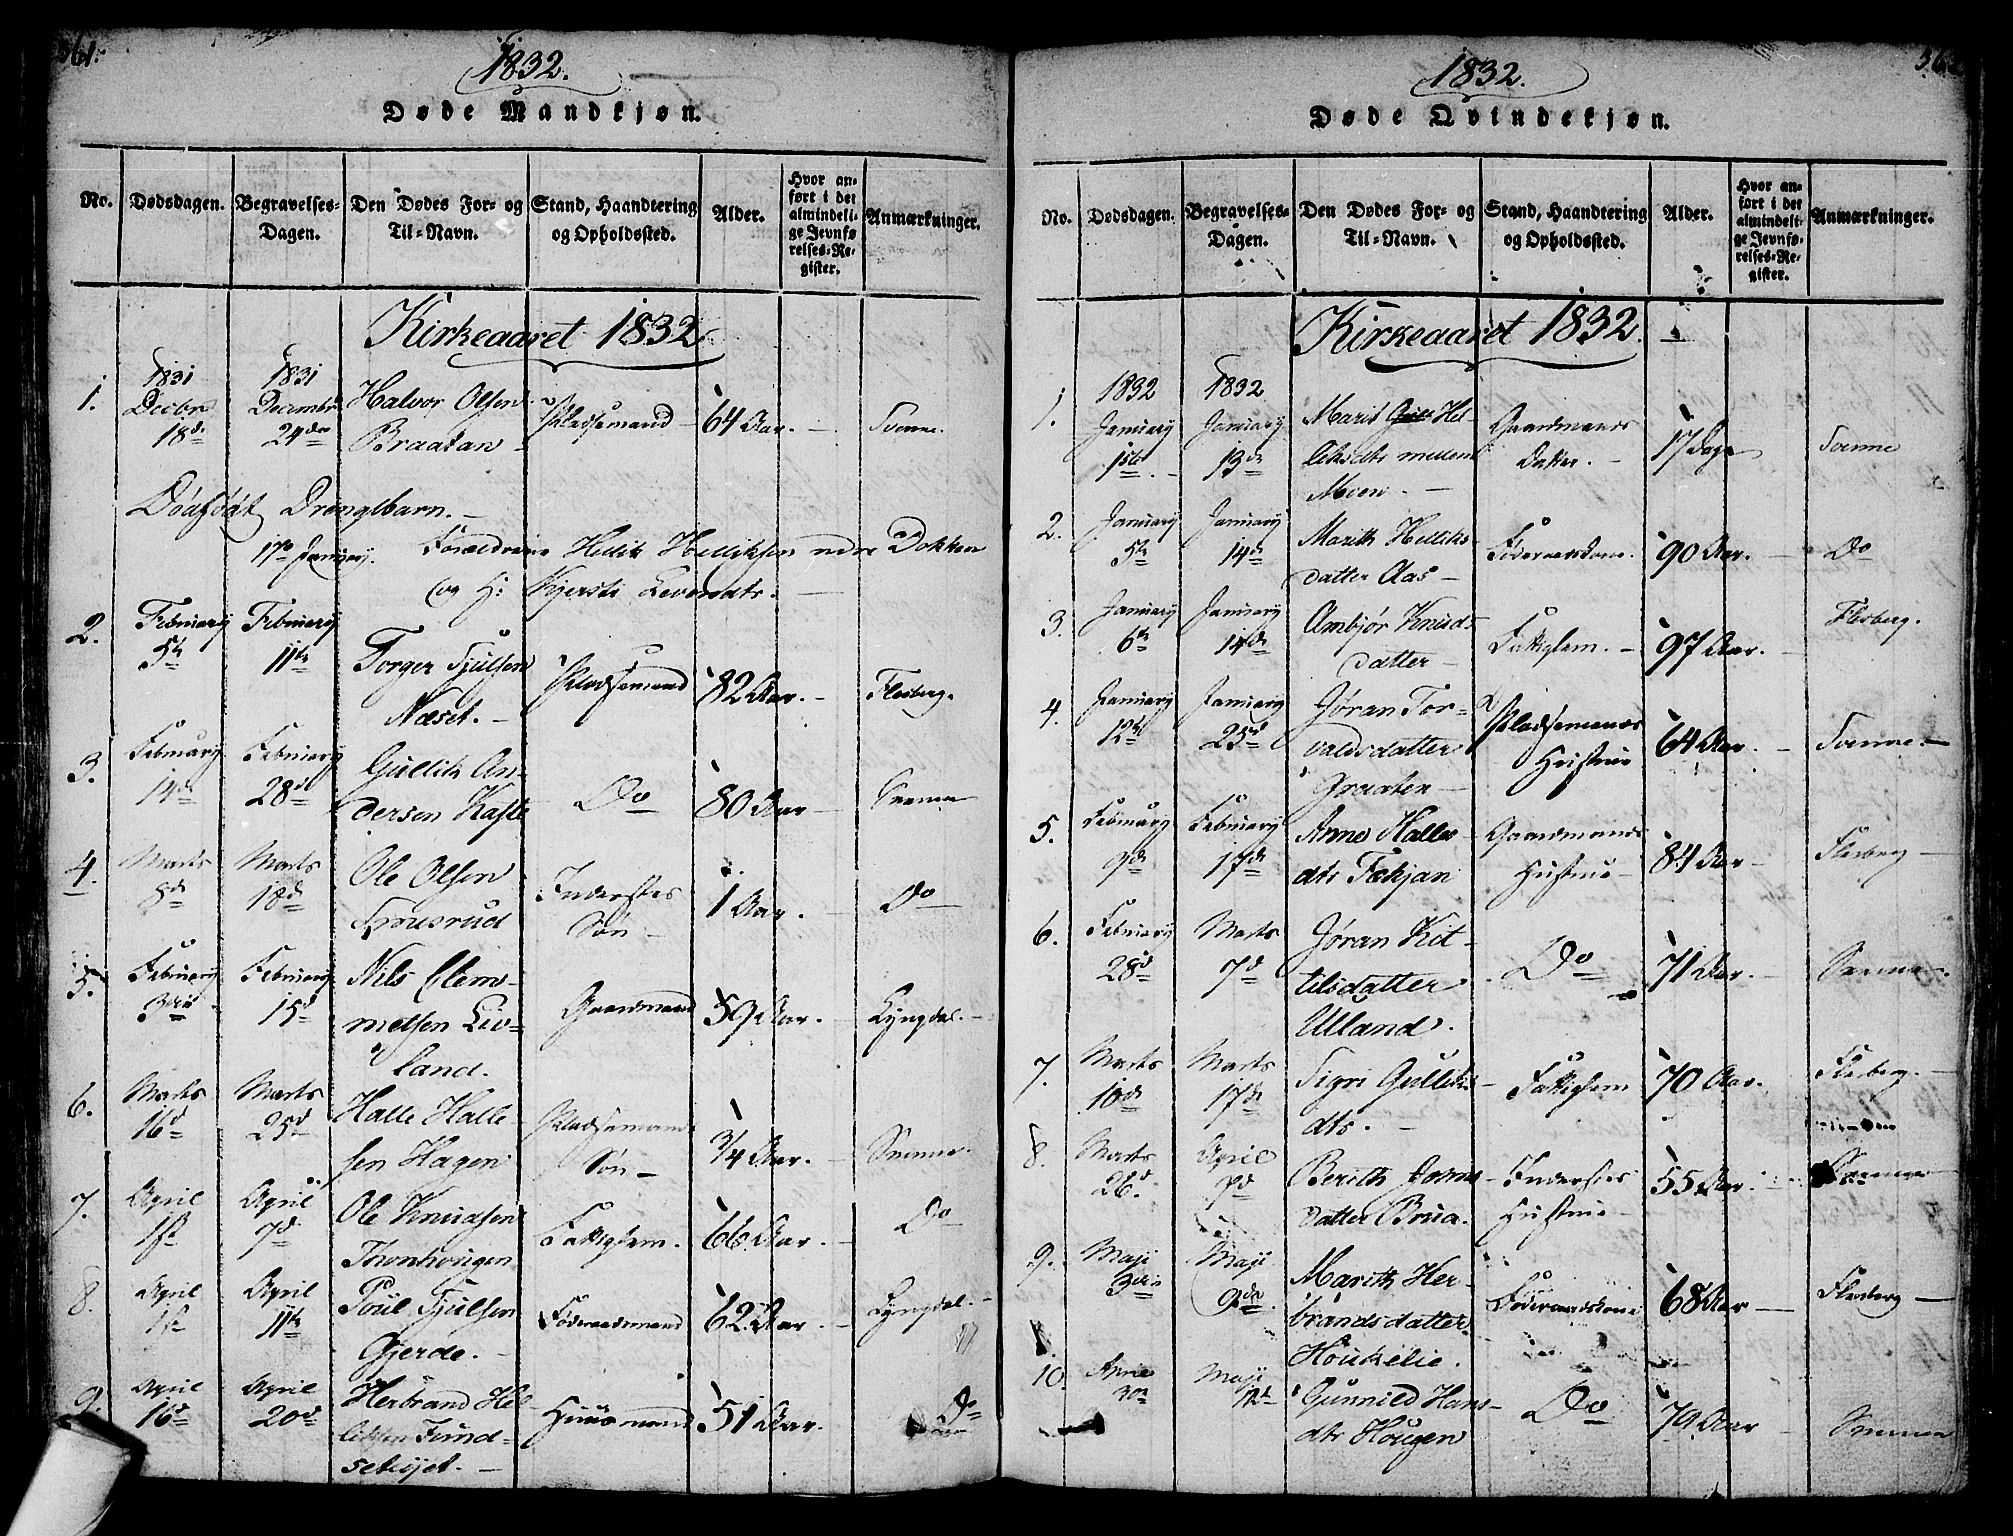 361.
1832.
Døde Mandkjøn.
No.
Dødsdagen.
Begravelses-
Dagen.
Den Dødes For- og
Til-Navn.
Stand, Haandtering
og Opholdssted.
Alder.
Hvor an-
ført i det
almindeli-
ge Jevnfø-
relses-Re-
gister.
Anmærkninger.
Kirkeaaret 1832.
1. 1831 Decbr 18de 1831 Decembr 24de Halvor Olsen Braatan Pladsemand 64 Aar. Svenne.
Dødfødt Drengebarn.
17de January. Forældrene Hellik Helliksen ndre Dokken
og H: Kjersti Eevendts.
2. February 5te February 11te Torger Tjulsen Næset. Pladsemand 82 Aar. Flesberg.
3. February 14de February 28de Gullik An-
dersen Kaste Do 80 Aar Svenne
4. Marts 8de Marts 18de Ole Olsen
Inderstes Søn 1 Aar. Do
5. February 3die February 15d Nils Clem-
metsen Liv-
land. Gaardmand 59 Aar. Lyngdal.
6. Marts 16d Marts 25d Halle Halle-
sen Hagen Pladsemands Søn 3/4 Aar. Svenne.
7. April 1ste April 7d Ole Knudsen
Thonhougen Fattiglem. 66 Aar. Do
8. April 1ste April 11te Poul Tjulsen
Gjerde. Føderaadsmand 62 Aar. Lyngdal.
9. April 16d April 20d Herbrand Hel-
liksen Fund-
setøjet. Huusmand 51 Aar. Do
1832.
Døde Qvindekjøn.
No.
Dødsdagen.
Begravelses-
Dagen.
Den Dødes For- og
Til-Navn.
Stand, Haandtering
og Opholdssted.
Alder.
Hvor an-
ført i det
almindeli-
ge Jevnfø-
relses-Re-
gister.
Anmærkninger.
Kirkeaaret 1832.
1. 1832 January 1ste 1832 January 13de Marit Hel-
liksdtr mellem
Moen. Gaardmands Datter. 17 Dage Svenne
2. January 5te January 14de Marith Helliks-
datter Aas Føderaadskone. 90 Aar. Do
3. January 6te January 14de Ambjør Knuds-
datter Fattiglem. 97 Aar. Flesberg.
4. January 12te January 25de Jøran Tor-
valdsdatter
Graaten Pladsemands Hustrue 64 Aar. Svenne.
5. February 9de February 17de Anne Halles-
dtr Fækjan Gaardmands Hustrue 84 Aar Flesberg
6. February 28d Marts 7d Jøran Kit-
tilsdatter
Ulland. Do 71 Aar. Svenne.
7. Marts 10de Marts 17de Sigri Gulliks-
dtr. Fattiglem 70 Aar. Flesberg.
8. Marts 26d April 7d Berith
datter Brua. Inderstes Hustrue 55 Aar. Svenne
9. Maji 3die Maji 9de Marith Her-
brandsdatter
Houkelie. Føderaadskone 68 Aar Flesberg
10. April 30te Maji 12te Gunnild Hans-
dtr Hougen Do 79 Aar Svenne